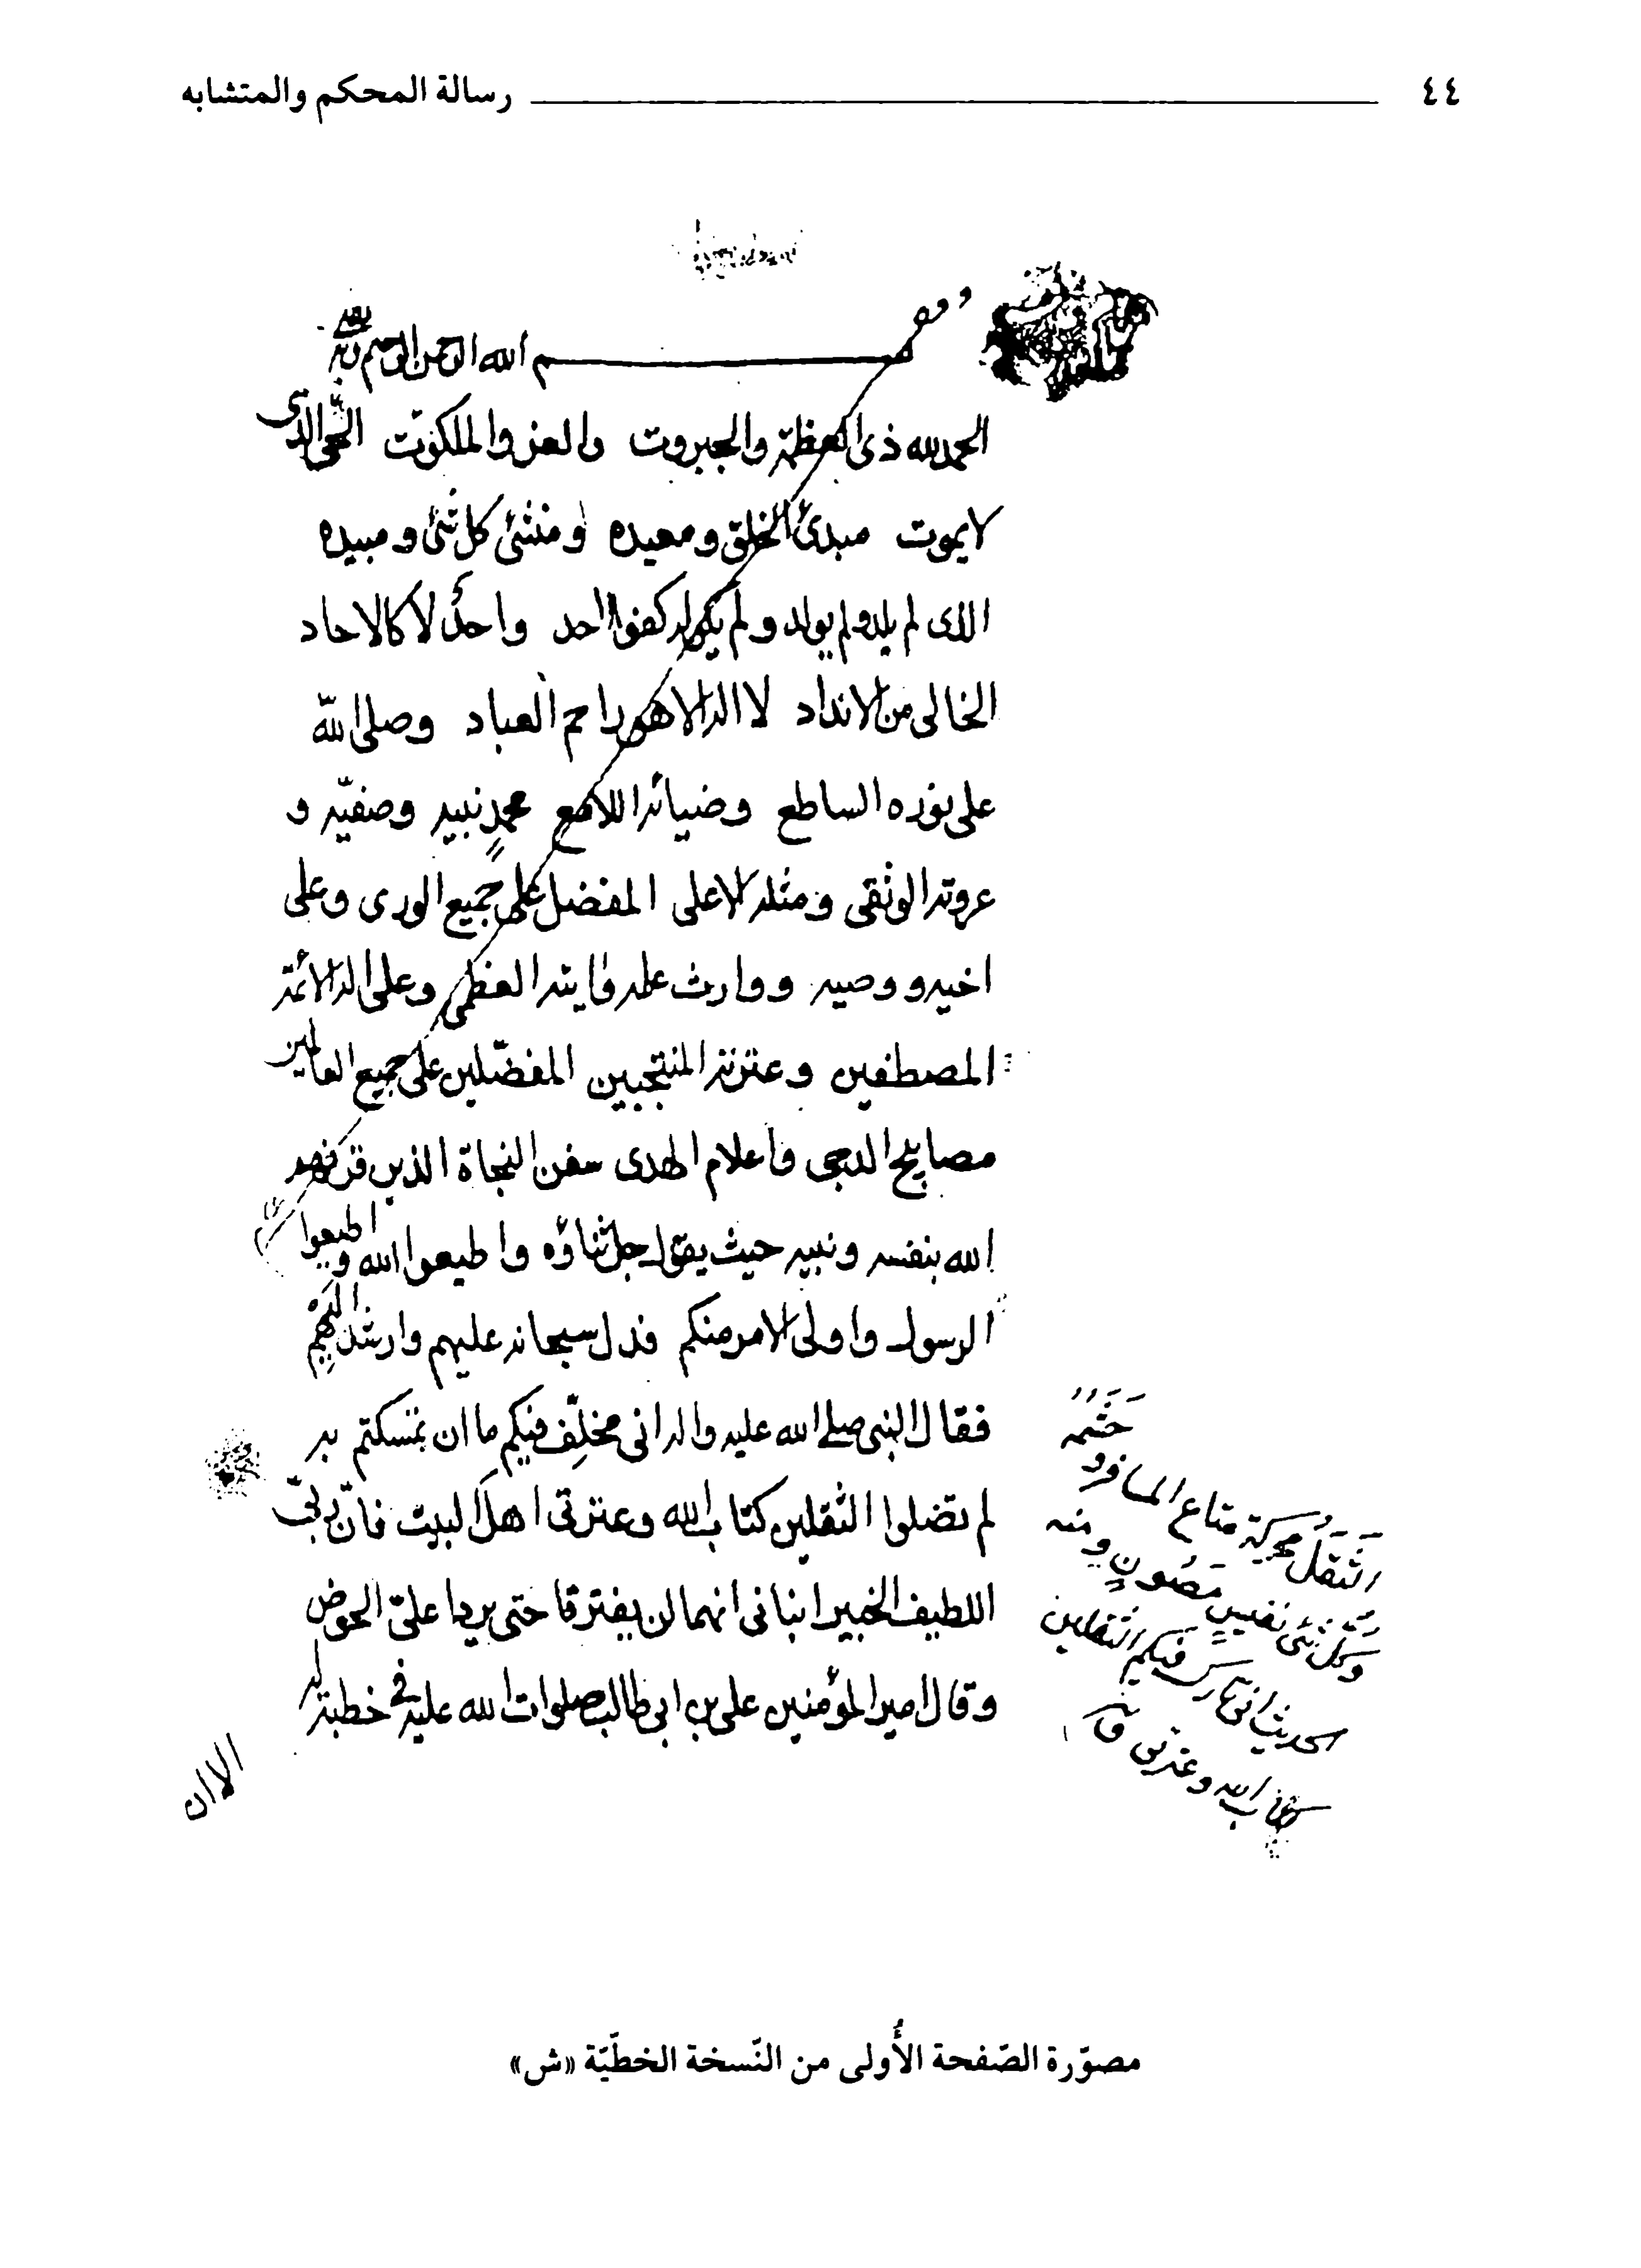 ٤٤ رسالة المحكم والمتشابه
بسم الله الرحمن الرحيم وبه
الحمد لله ذى العظمة والجبروت والعز والملكوت الحي الذى
لا يموت مبدئ الخلق ومعيده ومنشئ كل شئ ومبيده
الذى لم يلد ولم يولد ولم يكن له كفوا احد واحدٌ لا كالاحاد
الخالى من الانداد لا اله الا هو راحم العباد وصلى الله
على نوره الساطع وضيائه اللامع محمدٍ نبيه وصفيّه و
عروته الوثقى ومثله الاعلى المفضل على جميع الورى وعلى
اخيه ووصيه ووارث علمه وايته العظمى وعلى اله الائمة
المصطفين وعترته المنتجبين المفضّلين على جميع العالمين
مصابيح الدجى واعلام الهدى سفن النجاة الذين قرنهم
الله بنفسه ونبيه حيث يقول جل ثناؤه واطيعوا الله واطيعوا
الرسول واولى الامر منكم فدل سبحانه عليهم وارشد اليهم
فقال النبى صلى الله عليه واله انى مخلّف فيكم ما ان تمسكتم به
لم تضلوا الثقلين كتاب الله وعترتى اهل البيت فانّ ربّى
اللطيف الخبير انبانى انهما لن يفترقا حتى يردا علىّ الحوض
وقال امير المؤمنين على بن ابى طالب صلوات الله عليه فى خطبة له
الا ان
الثَّقَلُ محركة متاع المسافر و
حَشَمه
وكلّ شئ نفيسٍ مَصُونٍ ومنه
الحديث انى تارك فيكم الثقلين
كتاب الله وعترتى ق
مصوّرة الصّفحة الأُولى من النّسخة الخطيّة «ش»